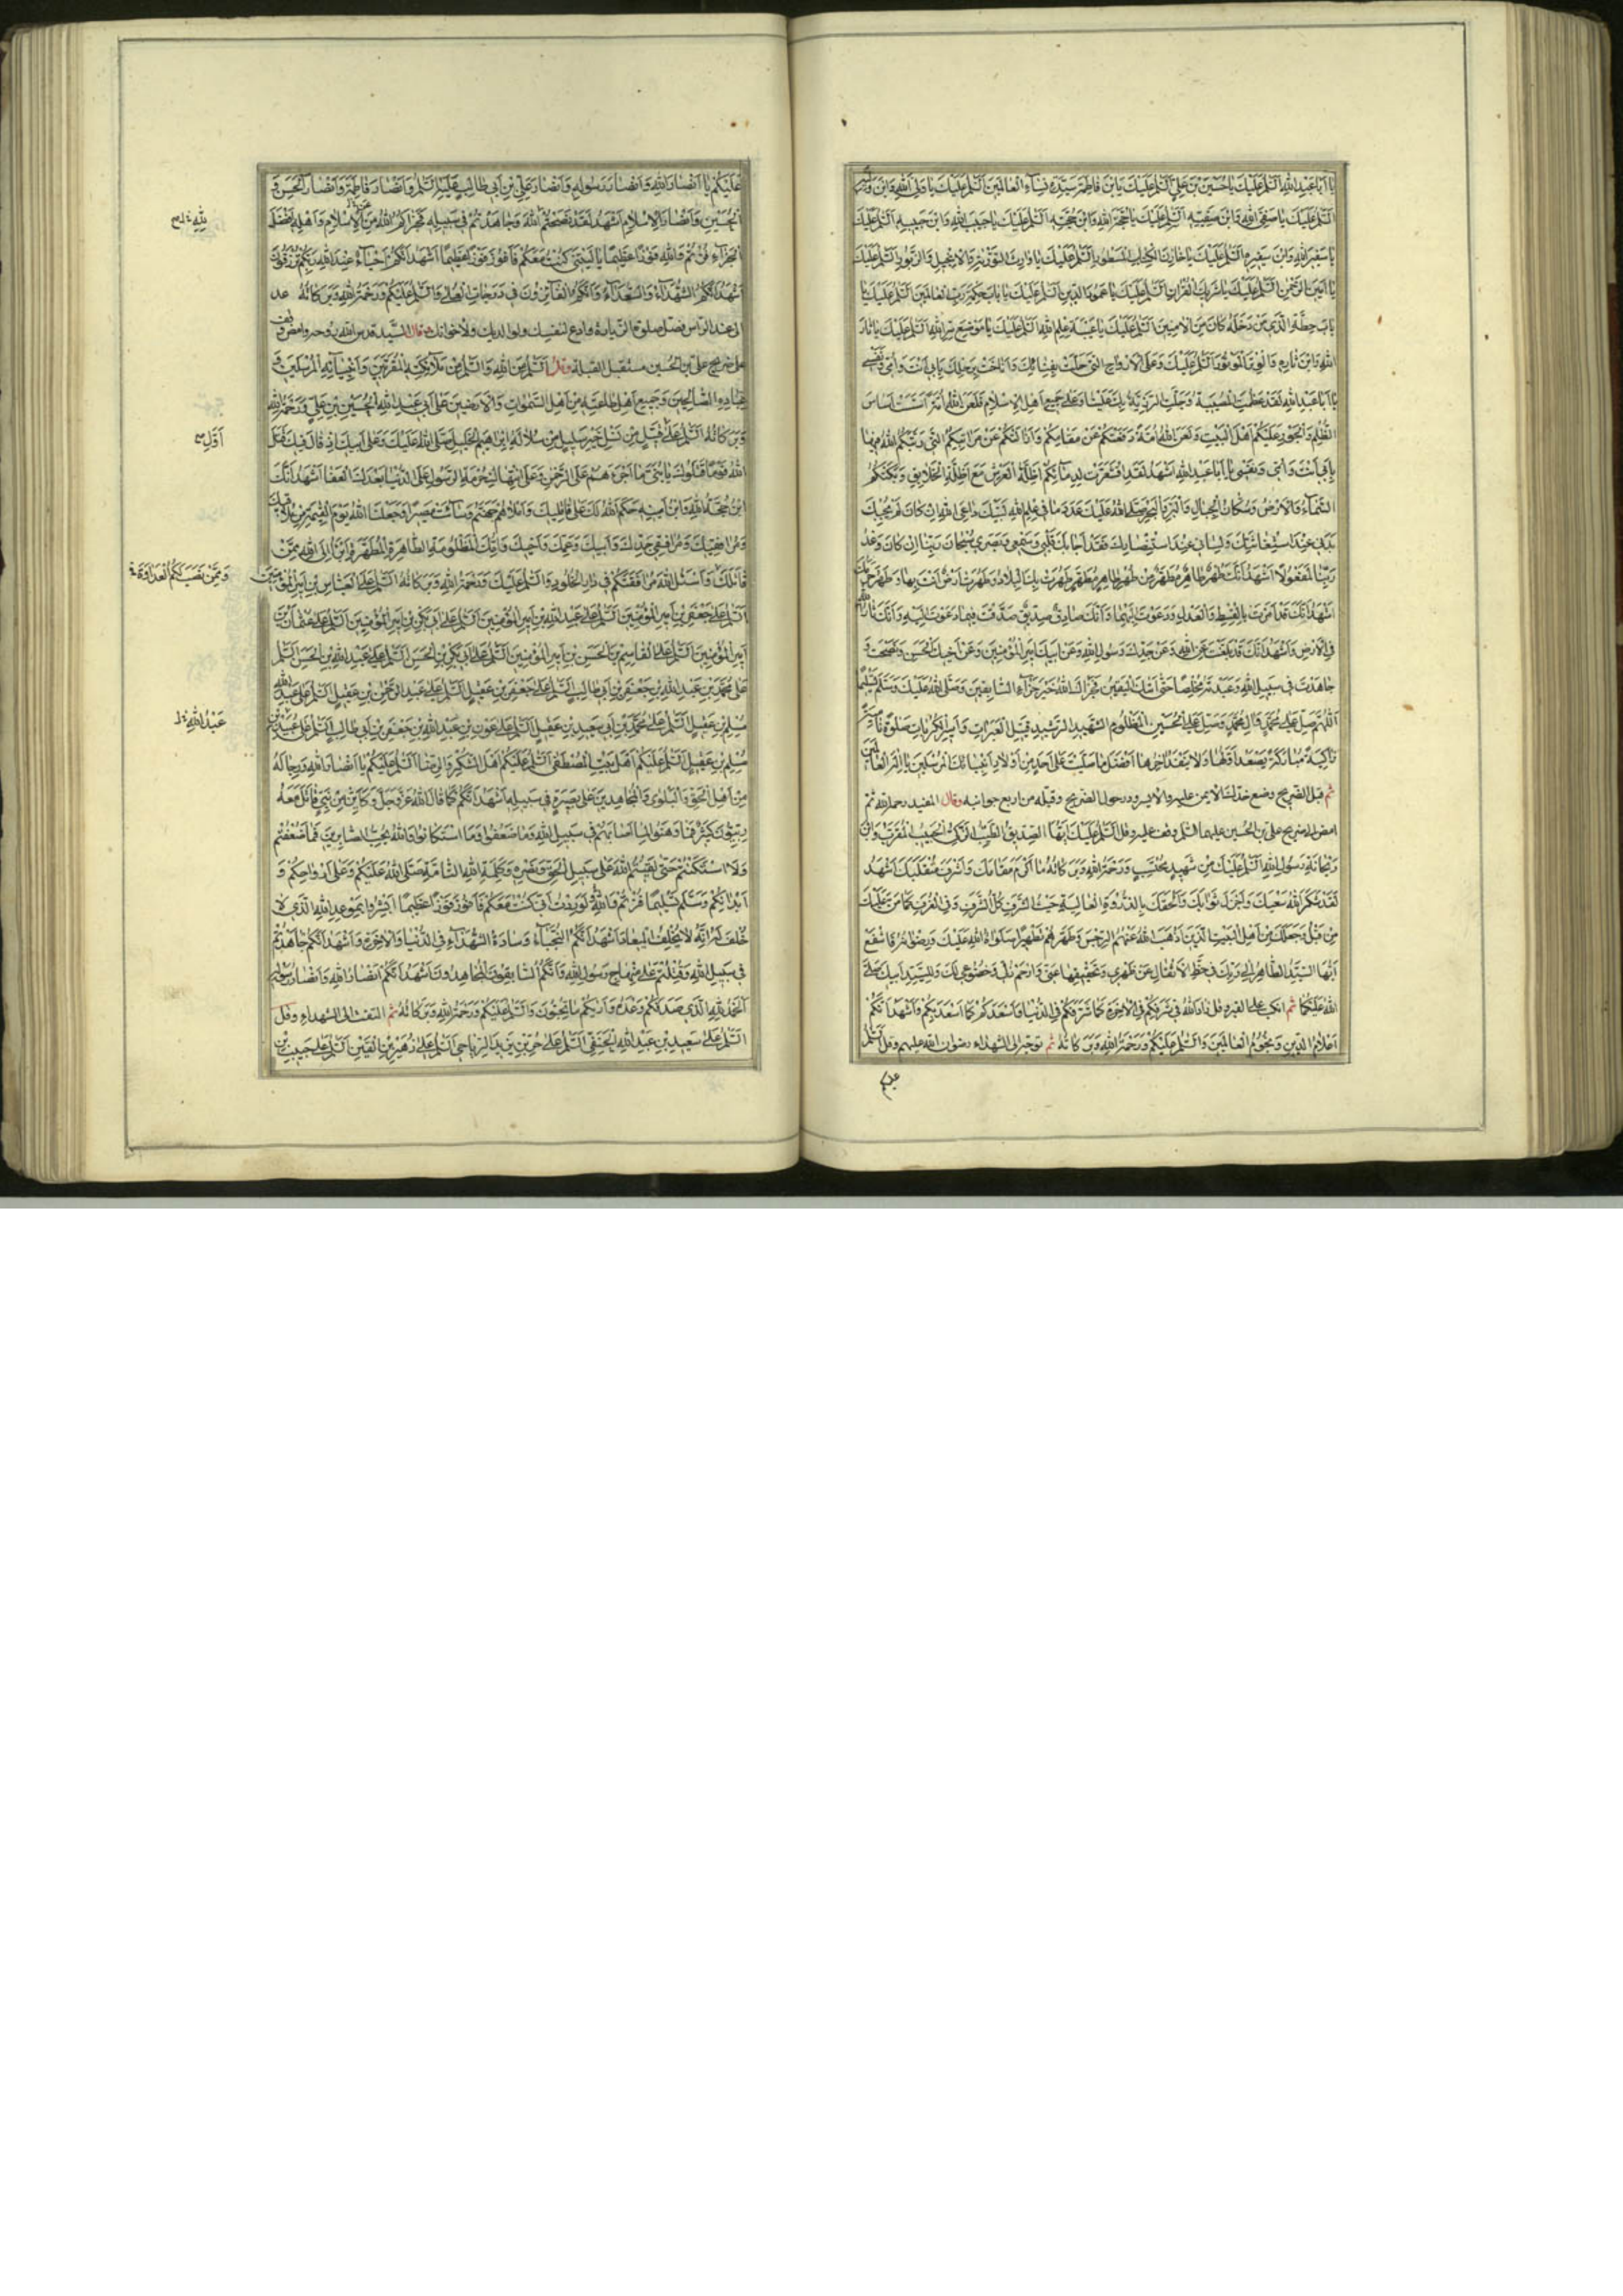 يا أبا عبد الله السلم عليك يا حسين بن علي السلم عليك يابن فاطمة سيدة نساء العالمين السلم عليك يا ولي الله وابن وليه
السلم عليك يا صفي الله وابن صفيه السلم عليك يا حجة الله وابن حجته السلم عليك يا حبيب الله وابن حبيبه السلم عليك
يا سفير الله وابن سفيره السلم عليك يا خازن الكتاب المسطور السلم عليك يا وارث التورية والانجيل والزبور السلم عليك
يا امين الرحمن السلم عليك يا شريك القران السلم عليك يا عمود الدين السلم عليك يا باب حكمة رب العالمين السلم عليك يا
باب حطة الذي من دخله كان من الامنين السلم عليك يا عيبة علم الله السلم عليك يا موضع سر الله السلم عليك يا ثار
الله وابن ثاره والوتر الموتور السلم عليك وعلى الارواح التي حلت بفنائك واناخت برحلك بابي انت وامي ونفسي
يا أبا عبد الله لقد عظمت المصيبة وجلت الرزية بك علينا وعلى جميع اهل الاسلام فلعن الله امة اسست اساس
الظلم والجور عليكم اهل البيت ولعن الله امة دفعتكم عن مقامكم وازالتكم عن مراتبكم التي رتبكم الله فيها
بابي انت وامي ونفسي يا أبا عبد الله اشهد لقد اقشعرت لدمائكم اظلة العرش مع اظلة الخلايق وبكتكم
السماء والارض وسكان الجنان والبر والبحر صلى الله عليك عدد ما في علم الله لبيك داعي الله ان كان لم يجبك
بدني عند استغاثتك ولساني عند استنصارك فقد اجابك قلبي وسمعي وبصري سبحان ربنا ان كان وعد
ربنا لمفعولا اشهد انك طهر طاهر مطهر من طهر طاهر مطهر طهرت بك البلاد وطهرت ارض انت بها وطهر حرمك
اشهد انك قد امرت بالقسط والعدل ودعوت اليهما وانك صادق صديق صدقت فيما دعوت اليه وانك ثار الله
في الارض واشهد انك قد بلغت عن الله وعن جدك رسول الله وعن ابيك امير المؤمنين وعن اخيك الحسن ونصحت و
جاهدت في سبيل الله وعبدته مخلصا حتى اتيك اليقين فجزاك الله خير جزاء السابقين وصلى الله عليك وسلم تسليما
اللهم صل على محمد وال محمد وصل على الحسين المظلوم الشهيد الرشيد قتيل العبرات واسير الكربات صلوة نامية
زاكية مباركة يصعد اولها ولا ينفد اخرها افضل ما صليت على احد من اولاد انبيائك المرسلين يا اله العالمين
ثم قبل الضريح وضع خدك الايمن عليه والايسر ودر حول الضريح وقبله من اربع جوانبه وقال المفيد رحمه الله ثم
امض الى ضريح علي بن الحسين عليهما السلم وقف عليه وقل السلم عليك ايها الصديق الطيب الزكي الحبيب المقرب وابن
ريحانة رسول الله السلم عليك من شهيد محتسب ورحمة الله وبركاته ما اكرم مقامك واشرف منقلبك اشهد
لقد شكر الله سعيك واجزل ثوابك والحقك بالذروة العالية حيث الشرف كل الشرف وفي الغرف كما من عليك
من قبل وجعلك من اهل البيت الذين اذهب الله عنهم الرجس وطهرهم تطهيرا صلوات الله عليك ورضوانه فاشفع
ايها السيد الطاهر الى ربك في حط الاثقال عن ظهري وتخفيفها عني وارحم ذلي وخضوعي لك وللسيد ابيك صلى
الله عليكما ثم انكب على القبر وقل زاد الله في شرفكم في الاخرة كما شرفكم في الدنيا واسعدكم كما اسعد بكم واشهد انكم
اعلام الدين ونجوم العالمين والسلم عليكم ورحمة الله وبركاته ثم توجه الى الشهداء رضوان الله عليهم وقل السلم
عليكم
عليكم يا انصار الله وانصار رسوله وانصار علي بن ابي طالب عليه السلم وانصار فاطمة وانصار الحسن و
الحسين وانصار الاسلام اشهد لقد نصحتم الله وجاهدتم في سبيله فجزاكم الله من الاسلام واهله افضل
الجزاء فزتم والله فوزا عظيما يا ليتني كنت معكم فافوز فوزا عظيما اشهد انكم احياء عند الله ربكم ترزقون
اشهد انكم الشهداء والسعداء وانكم الفائزون في درجات العلى والسلم عليكم ورحمة الله وبركاته عد
الى عند الراس فصل صلوة الزيارة وادع لنفسك ولوالديك ولاخوانك وقال السيد قدس الله روحه وامض وقف
على ضريح علي بن الحسين مستقبل القبلة وقل السلم من الله والسلم من ملائكته المقربين وانبيائه المرسلين و
عباده الصالحين وجميع اهل طاعته من اهل السموات والارضين على ابي عبد الله الحسين بن علي ورحمة الله
وبركاته السلم على قتيل من نسل خير سليل من سلالة ابراهيم الخليل صلى الله عليك وعلى ابيك اذ قال فيك قتل
الله قوما قتلوك يا بني ما اجرءهم على الرحمن وعلى انتهاك حرمة الرسول على الدنيا بعدك العفا اشهد انك
ابن حجة الله وابن امينه حكم الله لك على قاتليك واصلاهم جهنم وساءت مصيرا وجعلنا الله يوم القيمة من ملاقيك
ومرافقيك ومرافقي جدك وابيك وعمك واخيك وامك المظلومة الطاهرة المطهرة وابرء الى الله ممن
قاتلك واسئل الله مرافقتكم في دار الخلود والسلم عليك ورحمة الله وبركاته السلم على العباس بن امير المؤمنين
السلم على جعفر بن امير المؤمنين السلم على عبد الله بن امير المؤمنين السلم على ابي بكر بن امير المؤمنين السلم على عثمان بن
امير المؤمنين السلم على القاسم بن الحسن بن امير المؤمنين السلم على ابي بكر بن الحسن السلم على عبد الله بن الحسن السلم
على محمد بن عبد الله بن جعفر بن ابي طالب السلم على جعفر بن عقيل السلم على عبد الرحمن بن عقيل السلم على عبد الله
مسلم بن عقيل السلم على محمد بن ابي سعيد بن عقيل السلم على عون بن عبد الله بن جعفر بن ابي طالب السلم على عبيد الله بن
مسلم بن عقيل السلم عليكم اهل بيت المصطفى السلم عليكم اهل الشكر والرضا السلم عليكم يا انصار الله ورجاله
من اهل الحق والبلوى والمجاهدين على بصيرة في سبيله اشهد انكم كما قال الله عز وجل وكاين من نبي قاتل معه
ربيون كثير فما وهنوا لما اصابهم في سبيل الله وما ضعفوا وما استكانوا والله يحب الصابرين فما ضعفتم
ولا استكنتم حتى لقيتم الله على سبيل الحق ونصره وكلمة الله التامة صلى الله عليكم وعلى ارواحكم و
ابدانكم وسلم تسليما فزتم والله لوددت اني كنت معكم فافوز فوزا عظيما ابشروا بموعد الله الذي لا
خلف له انه لا يخلف الميعاد اشهد انكم النجباء وسادة الشهداء في الدنيا والاخرة واشهد انكم جاهدتم
في سبيل الله وقتلتم على منهاج رسول الله وانكم السابقون المجاهدون اشهد انكم انصار الله وانصار رسوله
الحمد لله الذي صدقكم وعده واريكم ما تحبون والسلم عليكم ورحمة الله وبركاته ثم التفت الى الشهداء وقل
السلم على سعيد بن عبد الله الحنفي السلم على حر بن يزيد الرياحي السلم على زهير بن القين السلم على حبيب بن
لله
اول
وممن نصب لكم العداوة
عبد الله